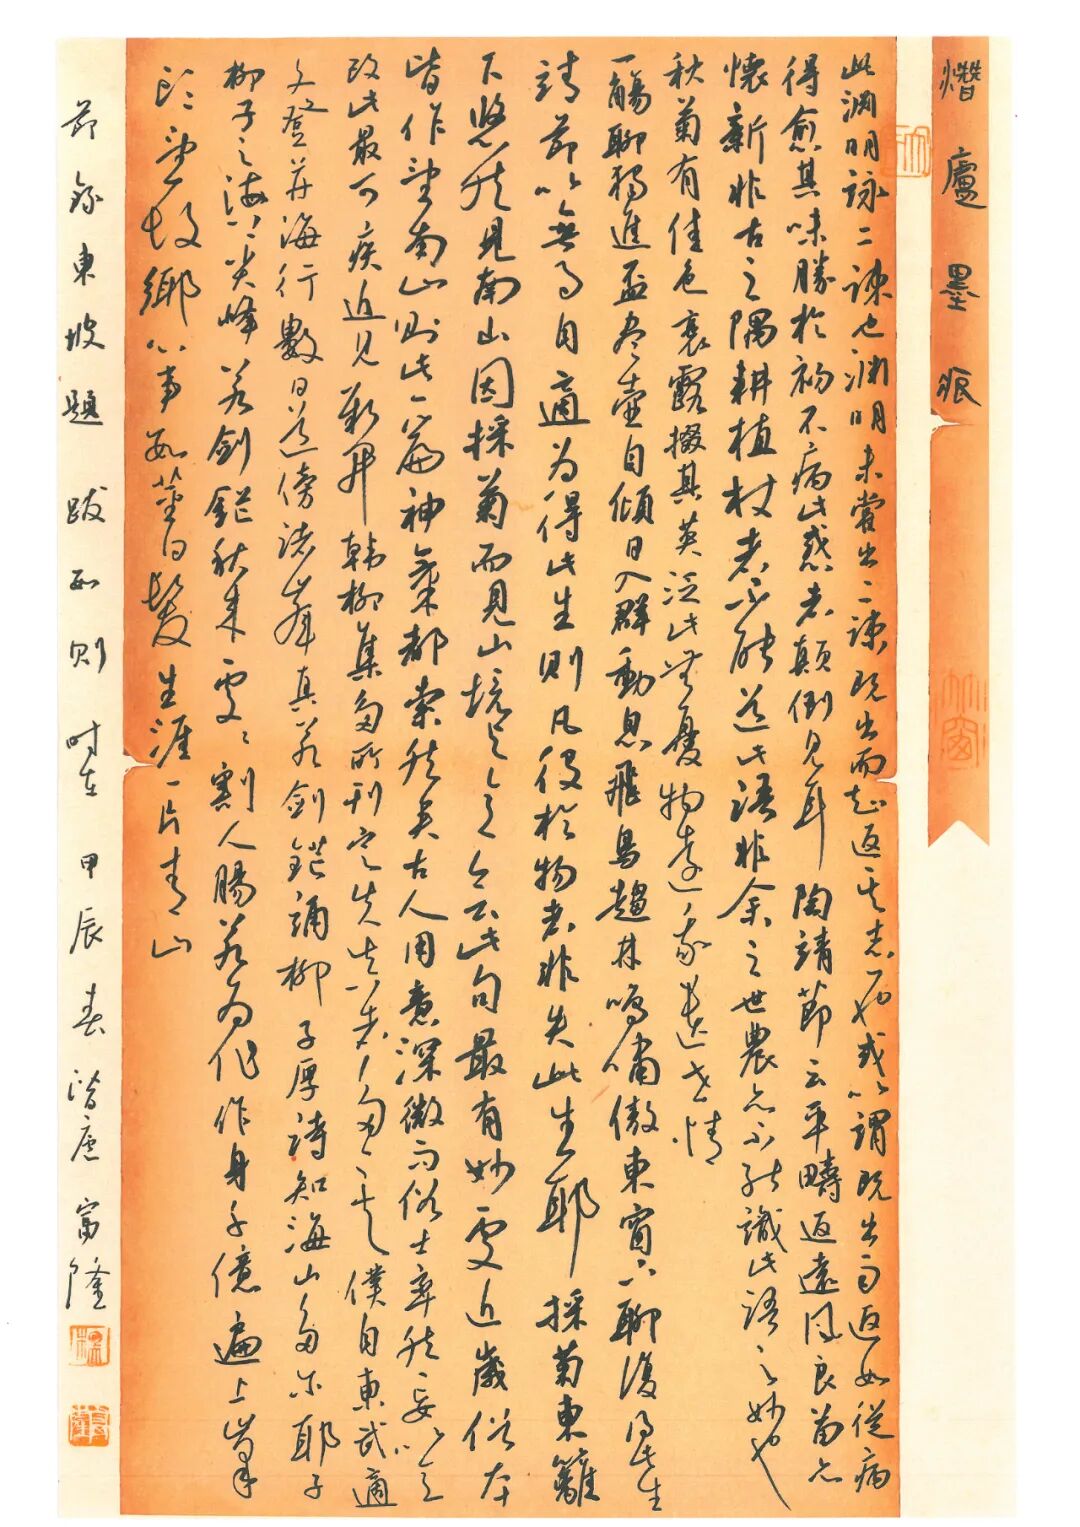 熸廬墨痕
此淵明詠二疎也淵明未嘗出二疎既出而知返其志一也或以謂既出而返如從病
得愈其味勝於初不病此惑者顛倒見耳 陶靖節云平疇返遠風良苗亦
懷新非古之隅耕植杖者不能道此語非余之世農亦不能識此語之妙也
秋菊有佳色裛露掇其英泛此無憂物遠我遺世情
一觴聊獨進盃盡壺自傾日入群動息飛鳥趨林鳴嘯傲東窗下聊復得此生
靖節以無事自適為得此生則凡役於物者非失此生耶 採菊東籬
下悠然見南山因採菊而見山境與意會此句最有妙處近歲俗本
皆作望南山則此一篇神氣都索然矣古人用意深微而俗士率然妄以意
改此最可疾近見新開韓柳集多所刊定失真者多矣 僕自東武適
文登並海行數日道傍諸峯真若劍鋩誦柳子厚詩知海山多爾耶子
柳子云海上尖峰若劍鋩秋來處處割人腸若為化作身千億遍上峯
頭望故鄉 心事如莹白髮生涯一片青山
節錄東坡題跋而則時在甲辰春潛廬富隆